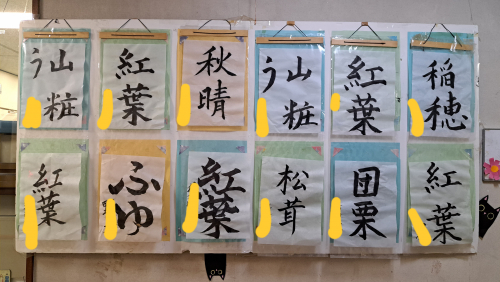 山粧
う
紅葉
秋晴
山粧
う
紅葉
稲穂
紅葉
ふゆ
紅葉
松茸
団栗
紅葉